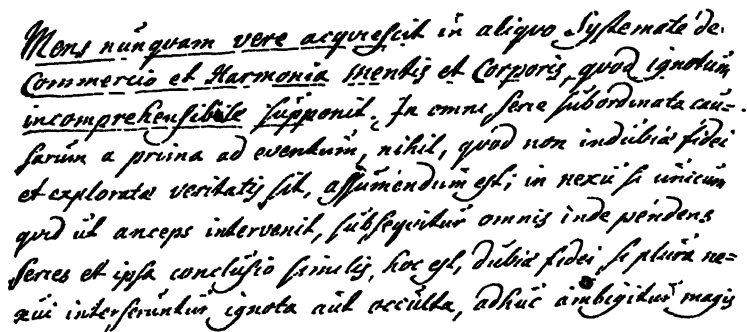 Mens nunquam vere acquiescit in aliquo Systemate de
Commercio et Harmonia mentis et Corporis, quod ignotum
incomprehensibile supponit. In omni serie subordinata cau-
sarum a prima ad eventum, nihil, quod non indubiæ fidei
et exploratæ veritatis sit, assumendum est; in nexu si unicum
quid ut anceps intervenit, subsequitur omnis inde pendens
series et ipsa conclusio similis, hoc est, dubiæ fidei, si plura ne-
xui interseruntur ignota aut occulta, adhuc ambigitur magis